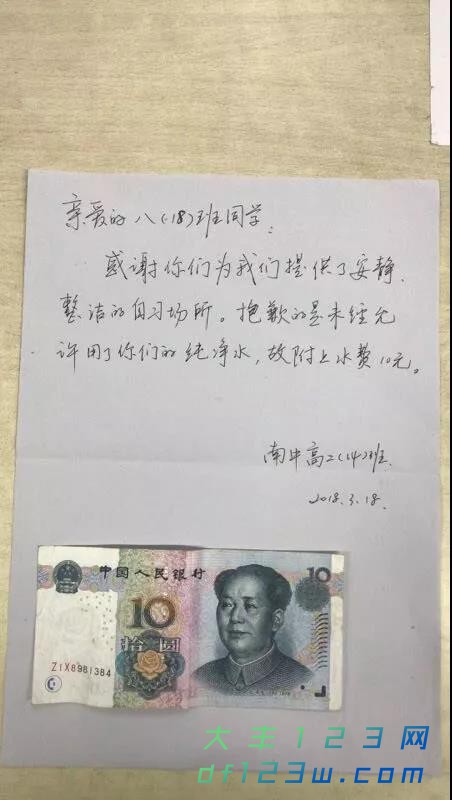 亲爱的八(18)班同学:
感谢你们为我们提供了安静、
整洁的自习场所。抱歉的是未经允
许用了你们的纯净水,故附上水费10元。
南中高二(14)班
2018.3.18.
中国人民银行
10
10
拾圆
Z1X8981384
大王123网
df123w.com